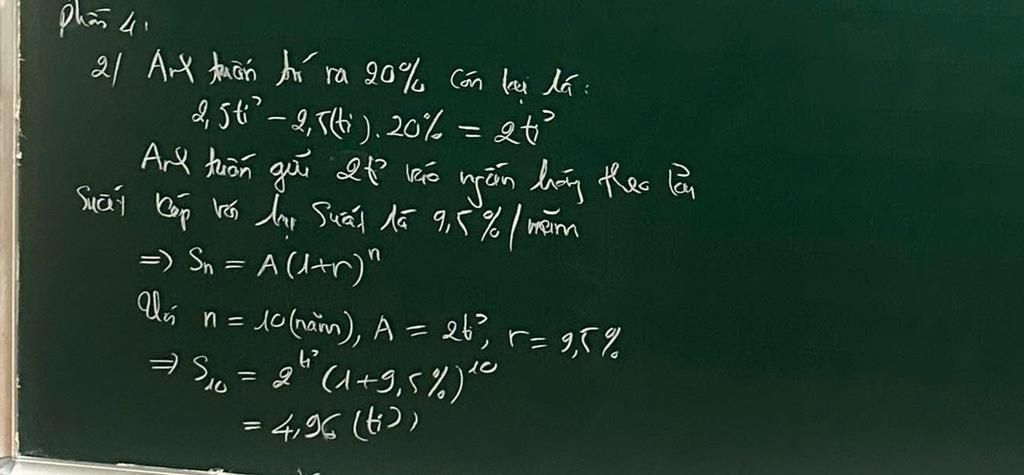 Phần 4.
2/ Anh tuấn trí ra 20% còn lại là:
2,5tỉ - 2,5(tỉ).20% = 2tỉ
Anh tuấn gửi 2tỉ vào ngân hàng theo lãi
suất kép với lãi suất là 9,5%/năm
=> Sn = A(1+r)^n
Với n = 10(năm), A = 2tỉ, r = 9,5%
=> S10 = 2tỉ (1+9,5%)^10
= 4,96 (tỉ)